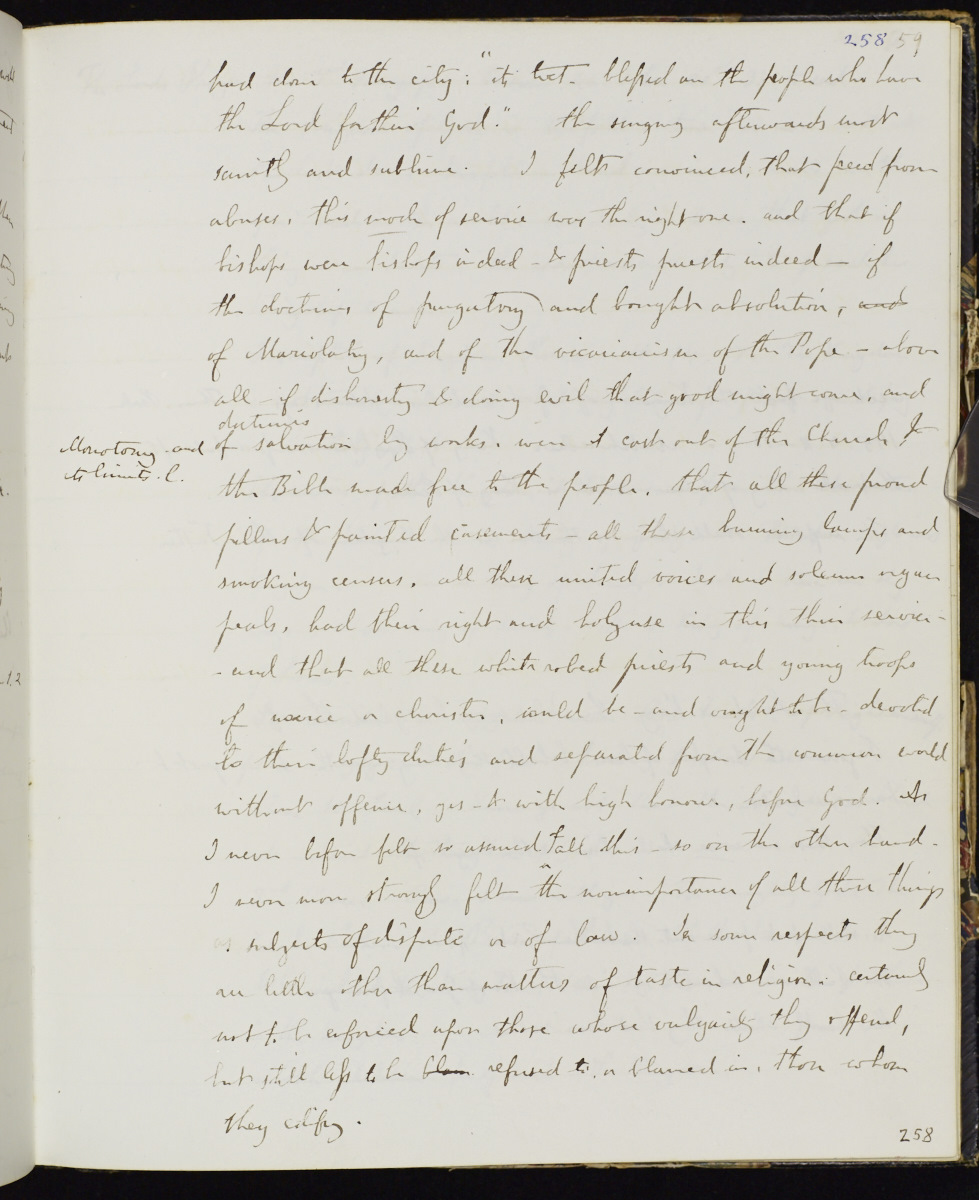 258 59
had done to the city: "its text - blessed are the people who have
the Lord for their God." the singing afterwards most
saintly and sublime. I felt convinced, that freed from
abuses, this mode of service was the right one. and that if
bishops were bishops indeed - & priests priests indeed - if
the doctrines of purgatory and bought absolution, and
of Mariolatry, and of the vicarianism of the Pope - above
all - if dishonesty & doing evil that good might come, and
doctrines
Monotony and
its limits. C.
of salvation by works. were cast out of the Church &
the Bible made free to the people. that all these proud
pillars & painted casements - all these burning lamps and
smoking censers. all these united voices and solemn organ
peals, had their right and holy use in this their service -
- and that all these white robed priests and young troops
of novice or chorister, could be - and ought to be - devoted
to their lofty duties and separated from the common world
without offence, yes - & with high honour, before God. As
I never before felt so assured of all this - so on the other hand -
I never more strongly felt the nonimportance of all these things
as subjects of dispute or of law. In some respects they
are little other than matters of taste in religion: certainly
not to be enforced upon those whose vulgarity they offend,
but still less to be blam refused to, or blamed in, those whom
they edify.
258